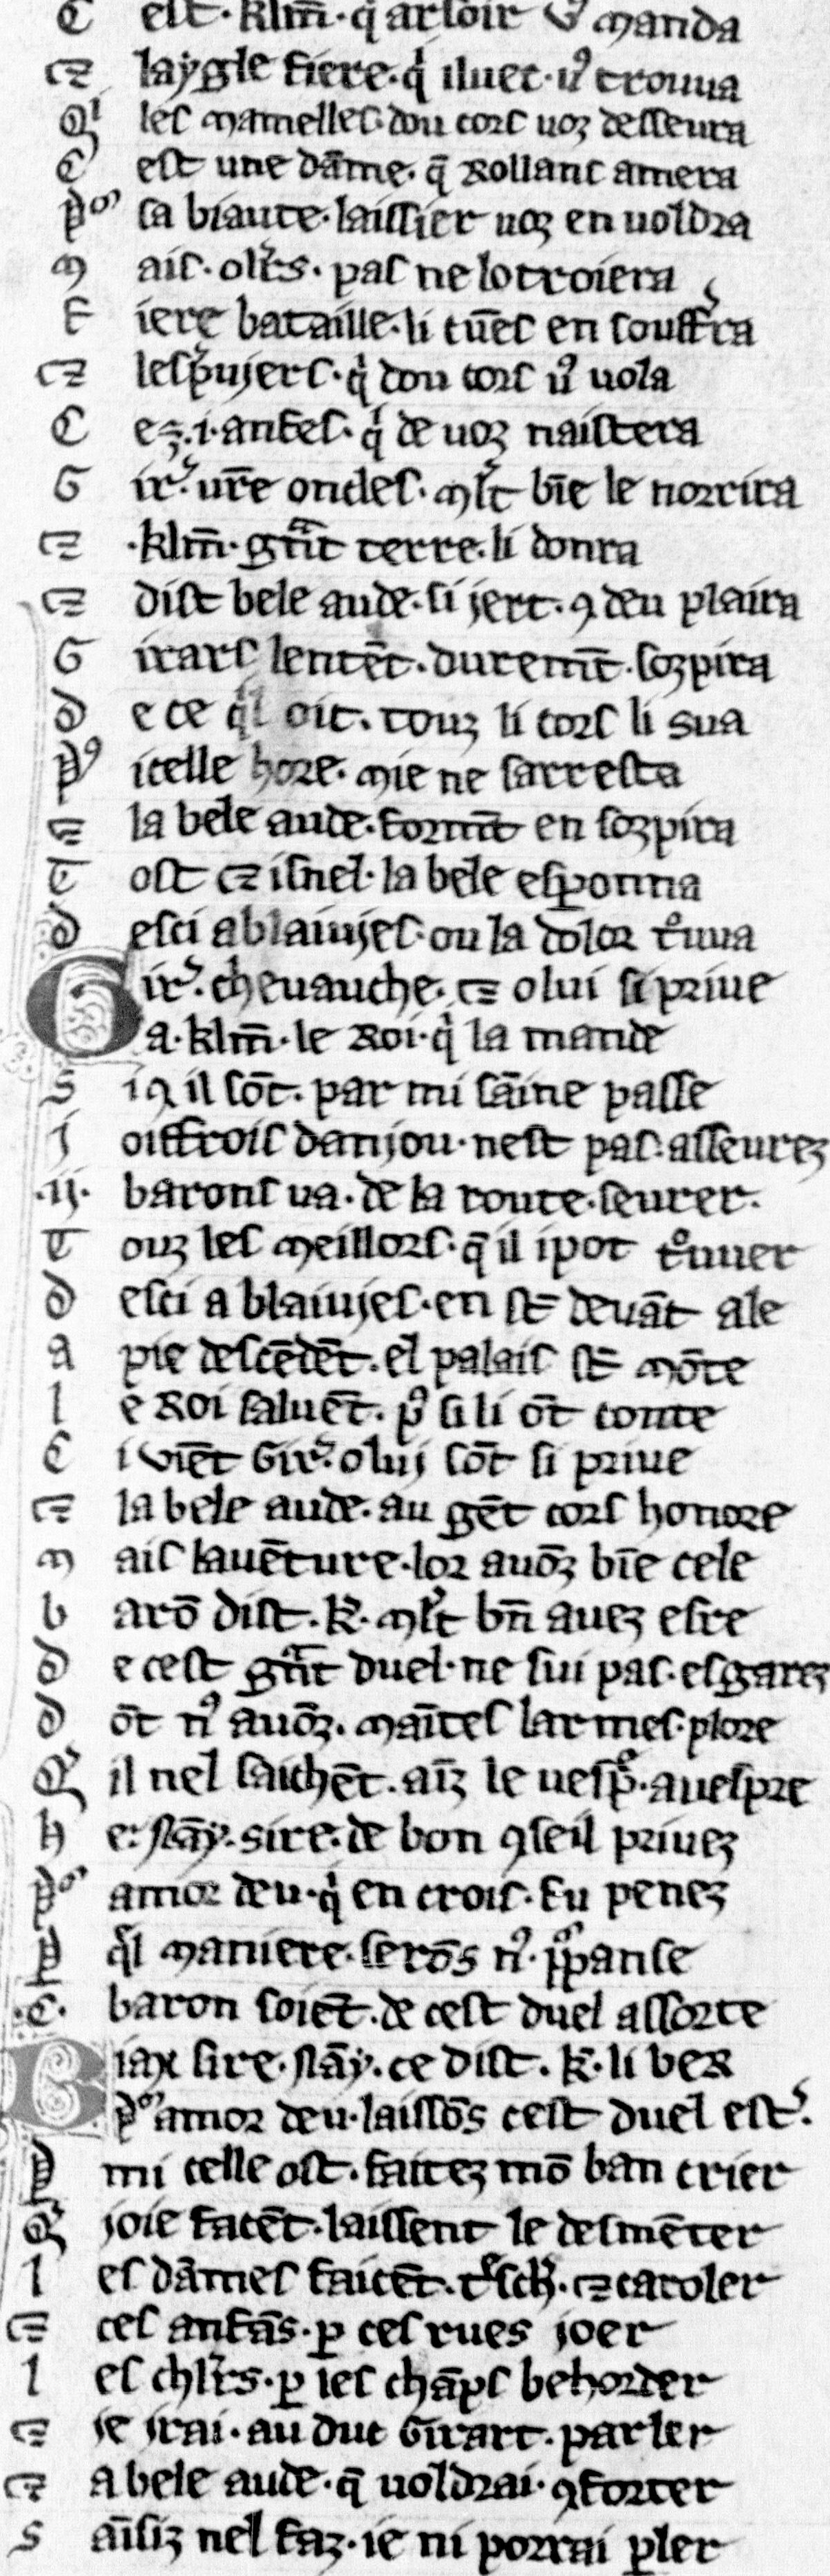 C est · klm̄ · q̉ arsoir vꝰ manda
⁊ laygle fiere · q̉ iluec · uꝰ trouua
Qͥ les mamelles · dou cors uoz desseura
C est une dāme · q̄ Rollans amera
pͦʳ sa biaute · laissier uoz en uoldra
m ais · olꝛ̄s · pas ne lotroiera
F iere bataille · li cūes en souffr̉a
⁊ lesꝑuiers · q̉ dou cors uꝰ uola
C ez · i · anfes · q̉ de uoz naistera
G irꝰ · ur̄e oncles · ml̄t bīe le norrira
⁊ · klm̄ · gnͣt terre · li donra
⁊ dist bele aude · si jert · ꝯ deu plaira
G irars lentēt · duremt̄ · sozpira
d e ce ql̉ oit · touz li cors li sua
pꝰ icelle hore · mie ne sarresta
⁊ la bele aude · formt̄ en sozpira
T ost ⁊ isnel · la bele esꝑonna
d esci a blaiujes · ou la dolor tͦuua
G irꝰ · cheuauche · ⁊ o lui si priue
a · klm̄ · le Roi · q̉ la mande
S i ꝯ il sōt · par mi sāine passe
j oiffrois danjou · nest pas · asseurez
· ij · barons ua · de la route · seurer ·
T ouz les meillors · q̄ il i pot tͦuuer
d esci a blaiujes · en st̄ deuāt ale
a pie descēdēt · el palais st̄ mōte
l e Roi saluēt · pꝰ si li ōt conte
C i viēt Girꝰ · o lui sōt si priue
⁊ la bele aude · au gēt cors honore
m ais lauēture · lor auōz bīe cele
b arō dist · k̄ · ml̄t bn̄ auez esre
d e cest gnͣt duel · ne sui pas · esgarez
d ōt nꝰ auōz · maītes larmes · plore
Q il nel saichēt · aīz le uespͤ · auespre
h e · nāy · sire · de bon ꝯseil priuez
pͦʳ amor deu · q̉ en crois · fu penez
ꝑ ql̉ maniere · serōs nꝰ · ꝓpanse
· C · baron soiēt · de cest duel assorte
B iax sire · nāy · ce dist · k̄ · li ber
pͦʳ amor deu · laissōs cest duel estꝰ ·
ꝑ mi celle ost · faitez mō ban crier
Q joie facēt · laissent le desmēter
l es dāmes faicēt · tͤsch̉ · ⁊ caroler
⁊ ces anfās · ꝑ ces rues joer
l es chlr̄s · ꝑ ces chāps behorder
⁊ je jrai · au duc Girart · parler
⁊ a bele aude · q̄ uoldrai · ꝯforter
S aīsiz nel faz · ie ni porrai ꝑler